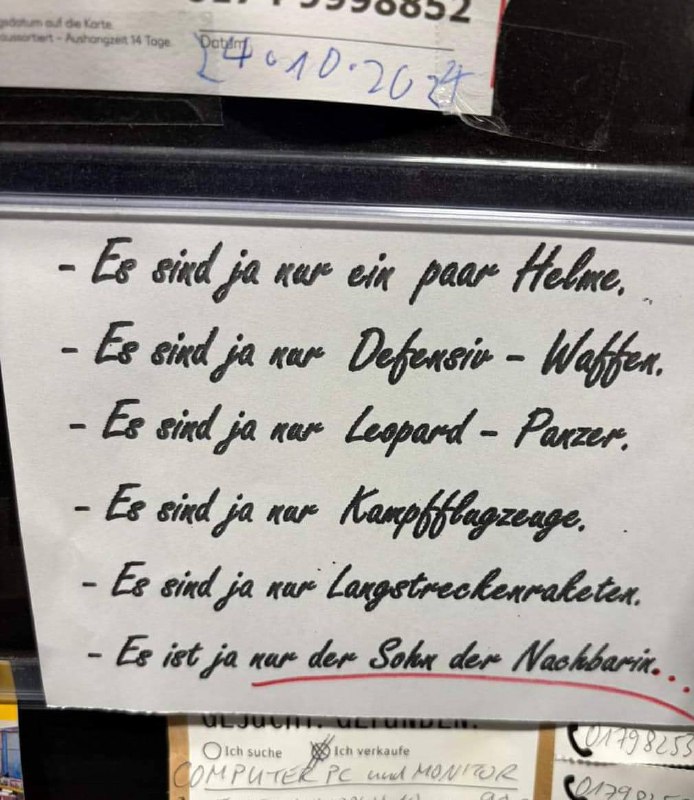 9998852
gsdatum auf die Karte.
aussortiert – Aushangzeit 14 Tage.
Datum
24.10.2024
- Es sind ja nur ein paar Helme.
- Es sind ja nur Defensiv - Waffen.
- Es sind ja nur Leopard - Panzer.
- Es sind ja nur Kampfflugzeuge.
- Es sind ja nur Langstreckenraketen.
- Es ist ja nur der Sohn der Nachbarin...
GESUCHT. GEFUNDEN.
Ich suche Ich verkaufe
COMPUTER PC und MONITOR
01798253
01798